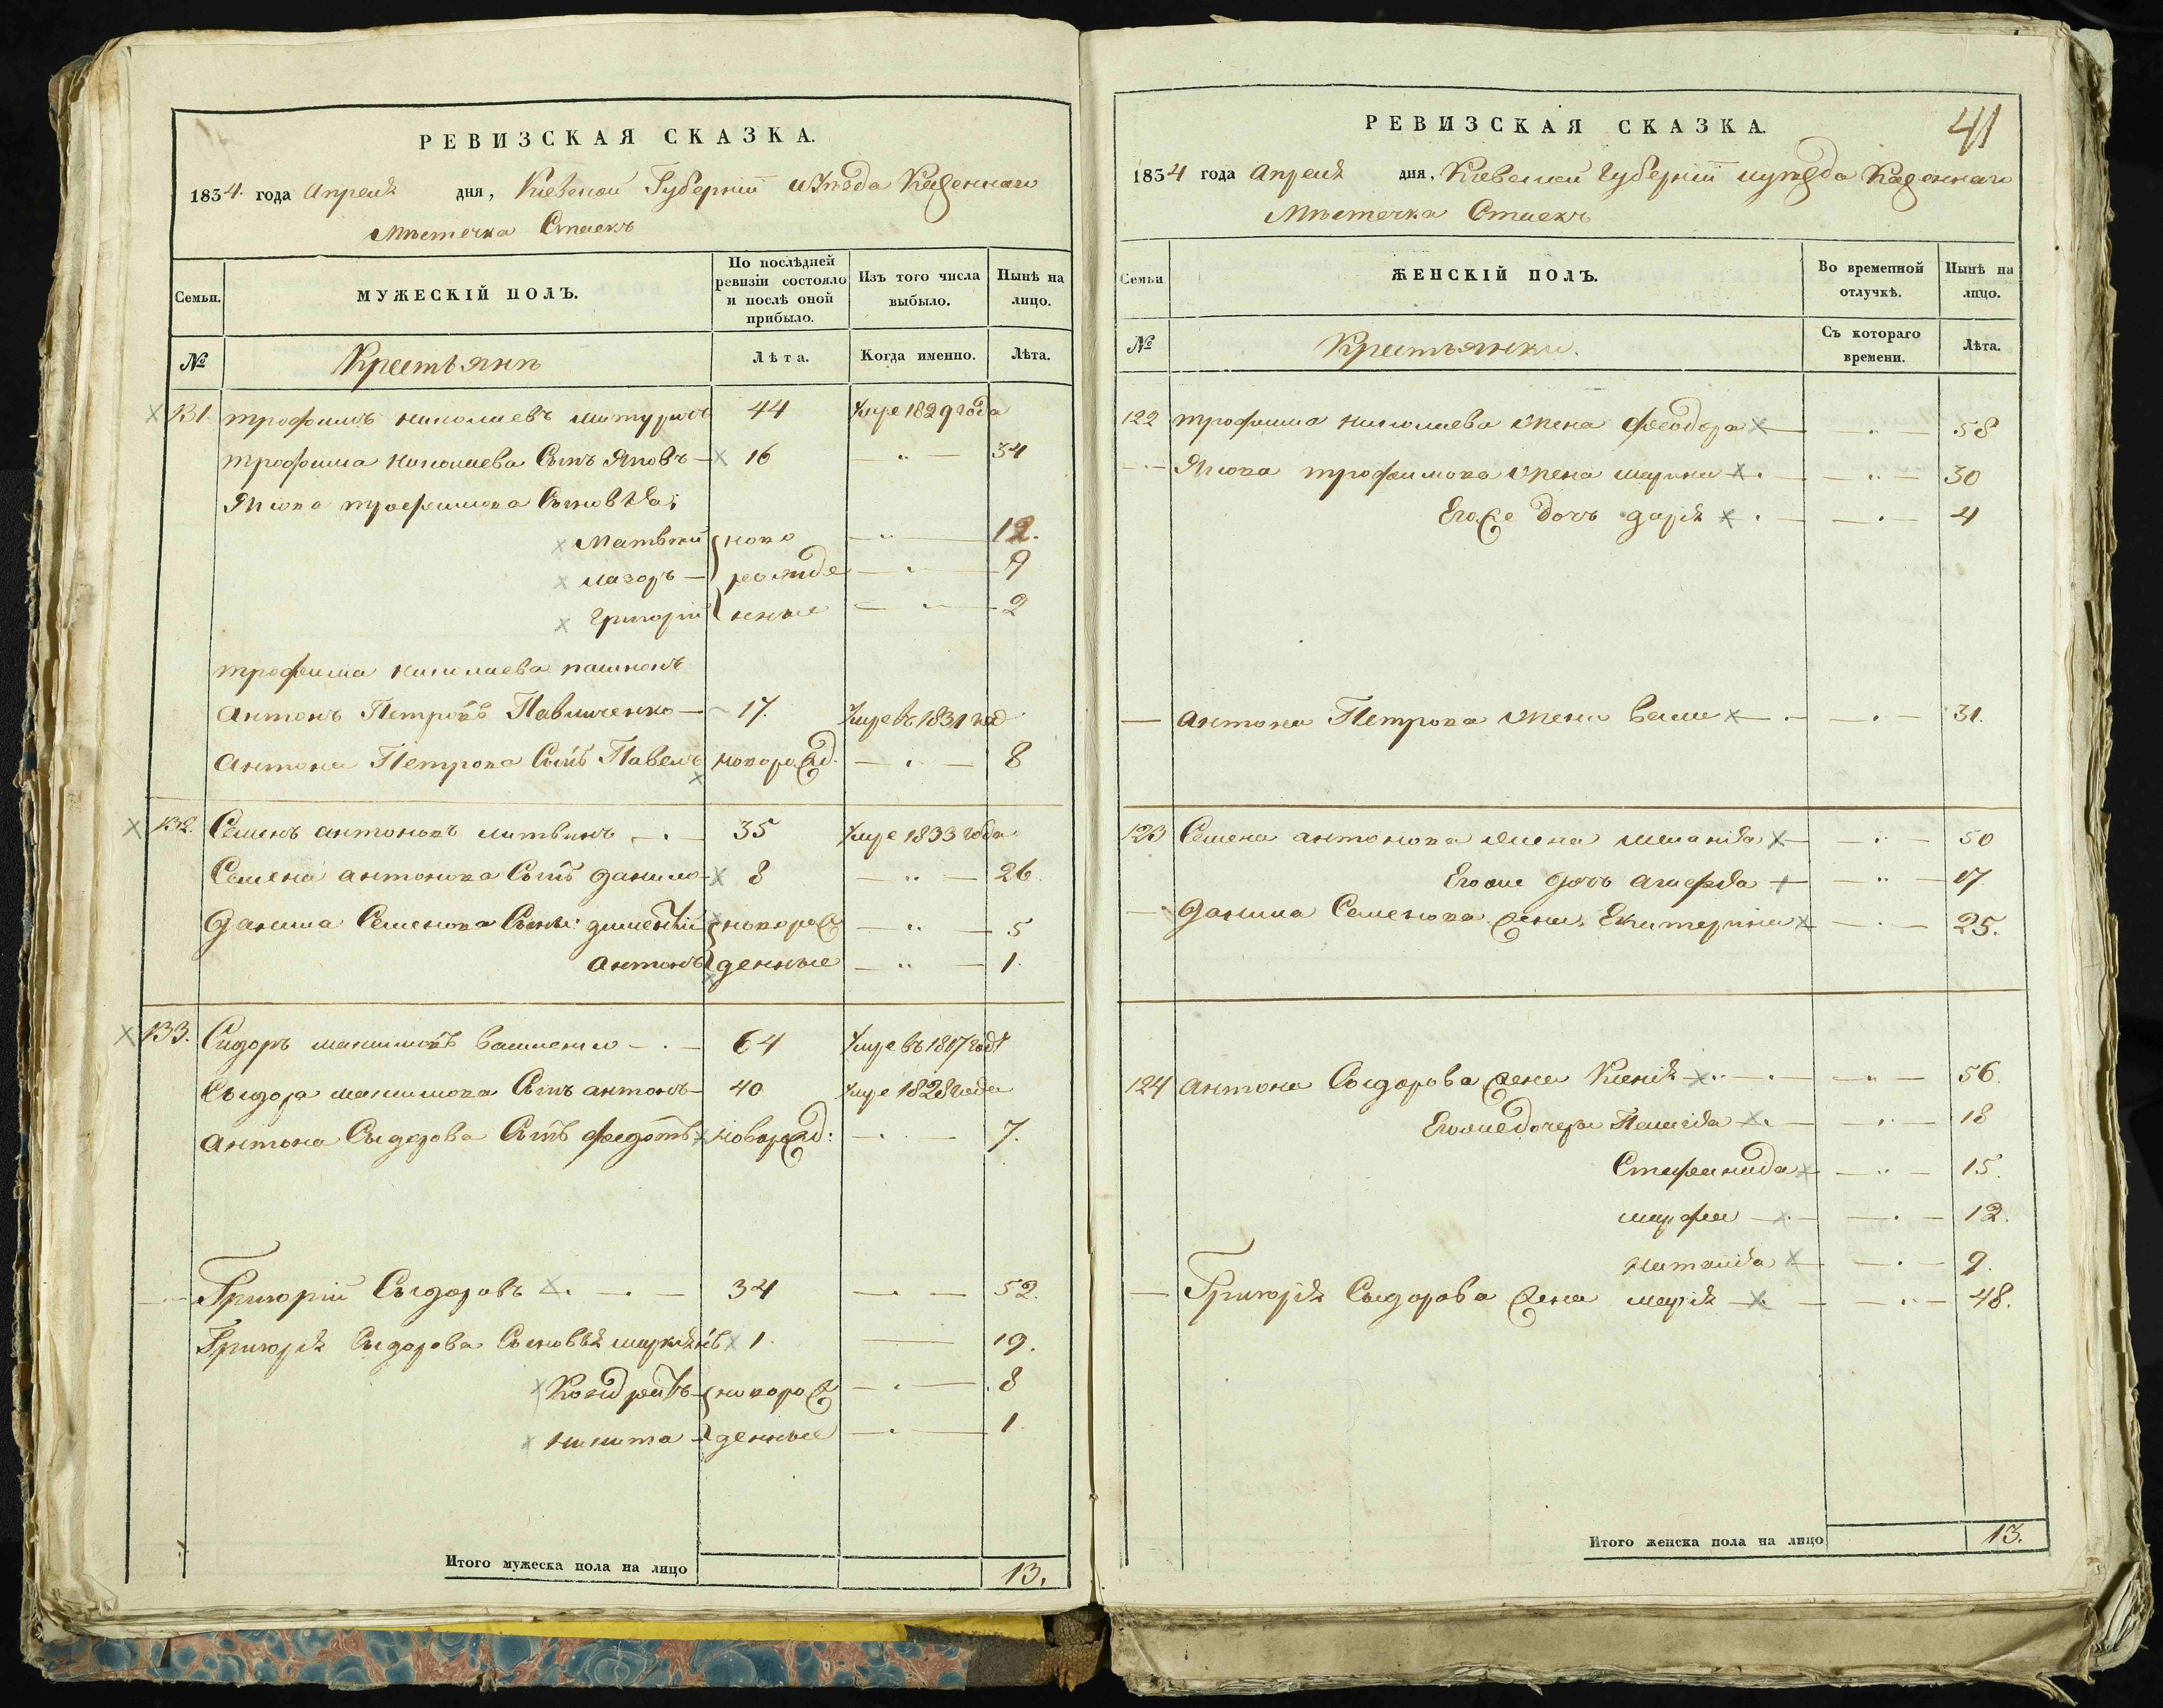 РЕВИЗСКАЯ СКАЗКА.
1834. года Апреля дня, Киевской Губернiи и Уѣзда Казеннаго
Мѣстечка Стаекъ
Семьи.
МУЖЕСКІЙ ПОЛЪ.
По послѣдней ревизіи состояло и послѣ оной прибыло.
Изъ того числа выбыло.
Нынѣ на лицо.
№
Крестьянѣ
Лѣта.
Когда именно.
Лѣта.
131. трофимъ николаевъ 44 Умре 1829 года
трофима николаева Сынъ Яковъ 16 — " — 34
Якова трофимова Сыновья:
Матвѣй ново — " — 12.
лазоръ рожде — " — 9
Григорій нные — " — 2
трофима николаева
антонъ Петровъ Павличенко 17. Умре въ 1831 год
антона Петрова Сынъ Павелъ новорожд. — " — 8
132. Семенъ антоновъ литвинъ 35 Умре 1833 года
Семена антонова Сынъ данило 8 — " — 26.
данила Семенова Сыны: дментій новорож — " — 5
антонъ денные — " — 1.
133. Сидоръ максимовъ 64 Умре въ 1817 годѣ
Сыдора максимова Сынъ антонъ 40 Умре 1828 года
антона Сыдорова Сынъ федотъ новорожд: — " — 7.
Григорій Сыдоровъ 34 — " — 52.
Григорія Сыдорова Сыновья маркіянъ 1. — 19.
Кондратъ новорож — " — 8
никита денные — " — 1
Итого мужеска пола на лицо 13.
41
РЕВИЗСКАЯ СКАЗКА.
1834 года Апреля дня, Киевской Губерніи и уѣзда Казеннаго
Мѣстечка Стаекъ
Семьи
ЖЕНСКІЙ ПОЛЪ.
Во временной отлучкѣ.
Нынѣ на лицо.
№
Крестьянки.
Съ котораго времени.
Лѣта.
122 трофима николаева жена феодора — " — 58
Якова трофимова жена марина — " — 30
Его же дочь дарія — " — 4
— антона Петрова жена — " — 31.
123 Семена антонова жена меланія — " — 50
Его же дочь агафія — " — 17
— данила Семенова жена Екатерина — " — 25.
124 антона Сыдорова жена Ксенія — " — 56.
Его же дочери Пелагія — " — 18
Стефанида — " — 15.
марфа — " — 12.
наталія — " — 9.
— Григорія Сыдорова жена марія — " — 48.
Итого женска пола на лицо 13.